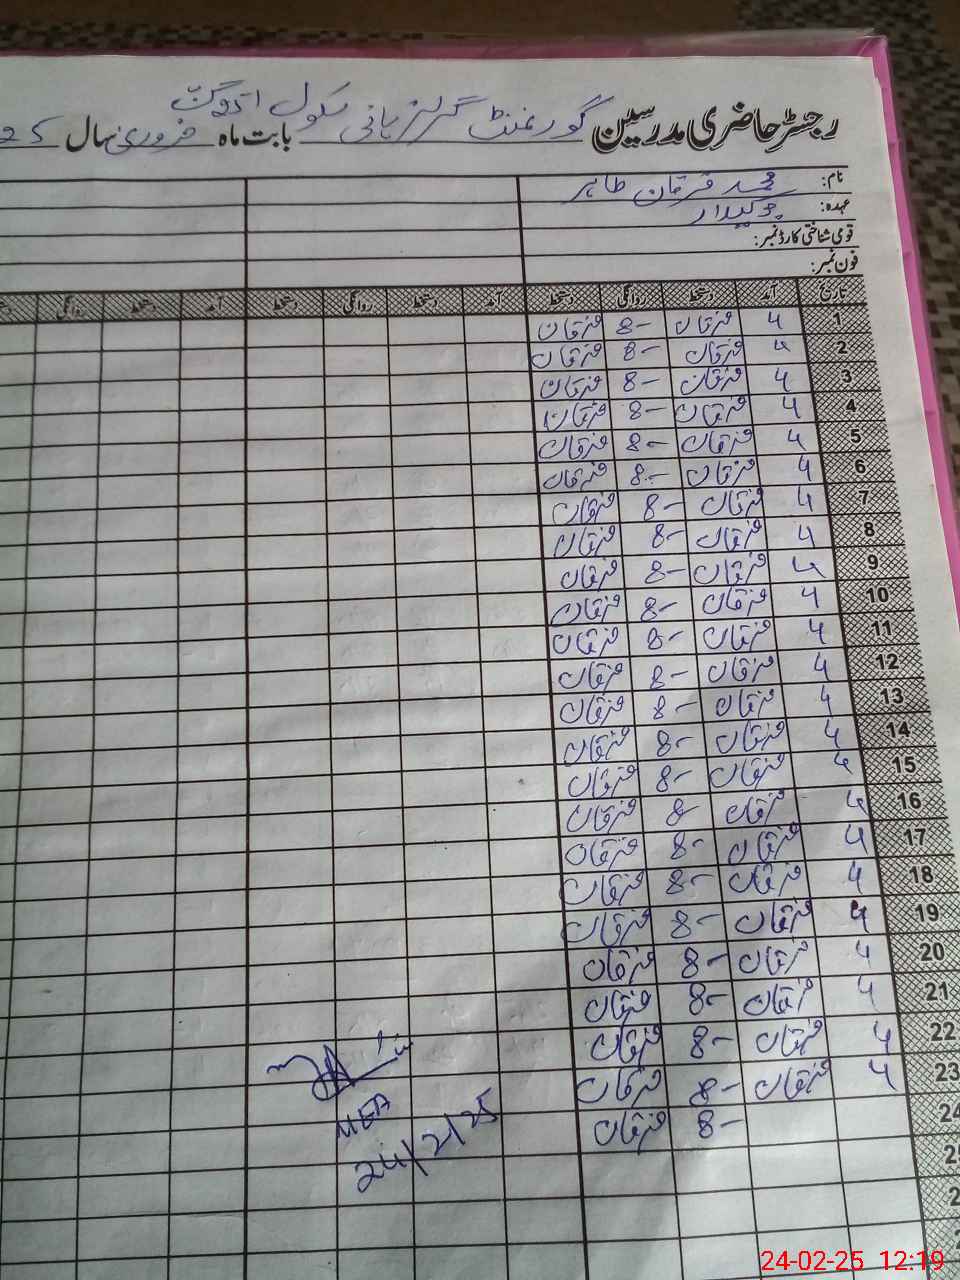 رجسٹر حاضری مدرسین گورنمنٹ گرلز ہائی سکول بابت ماہ فروری سال 25
نام: محمد فرقان طاہر
عہدہ: چوکیدار
قومی شناختی کارڈ نمبر:
فون نمبر:
تاریخ آمد دستخط روانگی دستخط آمد دستخط روانگی دستخط آمد دستخط روانگی
1 4 فرقان 8- فرقان
2 4 فرقان 8- فرقان
3 4 فرقان 8- فرقان
4 4 فرقان 8- فرقان
5 4 فرقان 8- فرقان
6 4 فرقان 8- فرقان
7 4 فرقان 8- فرقان
8 4 فرقان 8- فرقان
9 4 فرقان 8- فرقان
10 4 فرقان 8- فرقان
11 4 فرقان 8- فرقان
12 4 فرقان 8- فرقان
13 4 فرقان 8- فرقان
14 4 فرقان 8- فرقان
15 4 فرقان 8- فرقان
16 4 فرقان 8- فرقان
17 4 فرقان 8- فرقان
18 4 فرقان 8- فرقان
19 4 فرقان 8- فرقان
20 4 فرقان 8- فرقان
21 4 فرقان 8- فرقان
22 4 فرقان 8- فرقان
23 4 فرقان 8- فرقان
24 8- فرقان
MEA
24/2/25
24-02-25 12:19